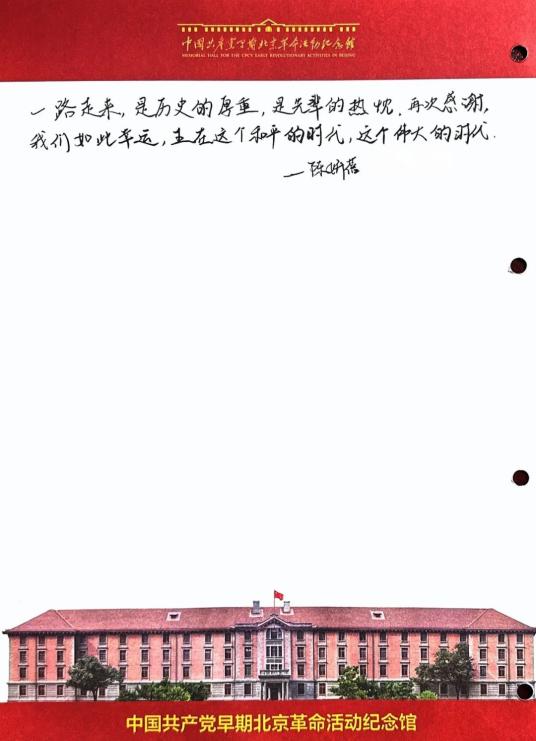 中国共产党早期北京革命活动纪念馆
MEMORIAL HALL FOR THE CPC'S EARLY REVOLUTIONARY ACTIVITIES IN BEIJING
一路走来，是历史的厚重，是先辈的热忱，再次感谢，
我们如此幸运，生在这个和平的时代，这个伟大的时代.
—陈
中国共产党早期北京革命活动纪念馆